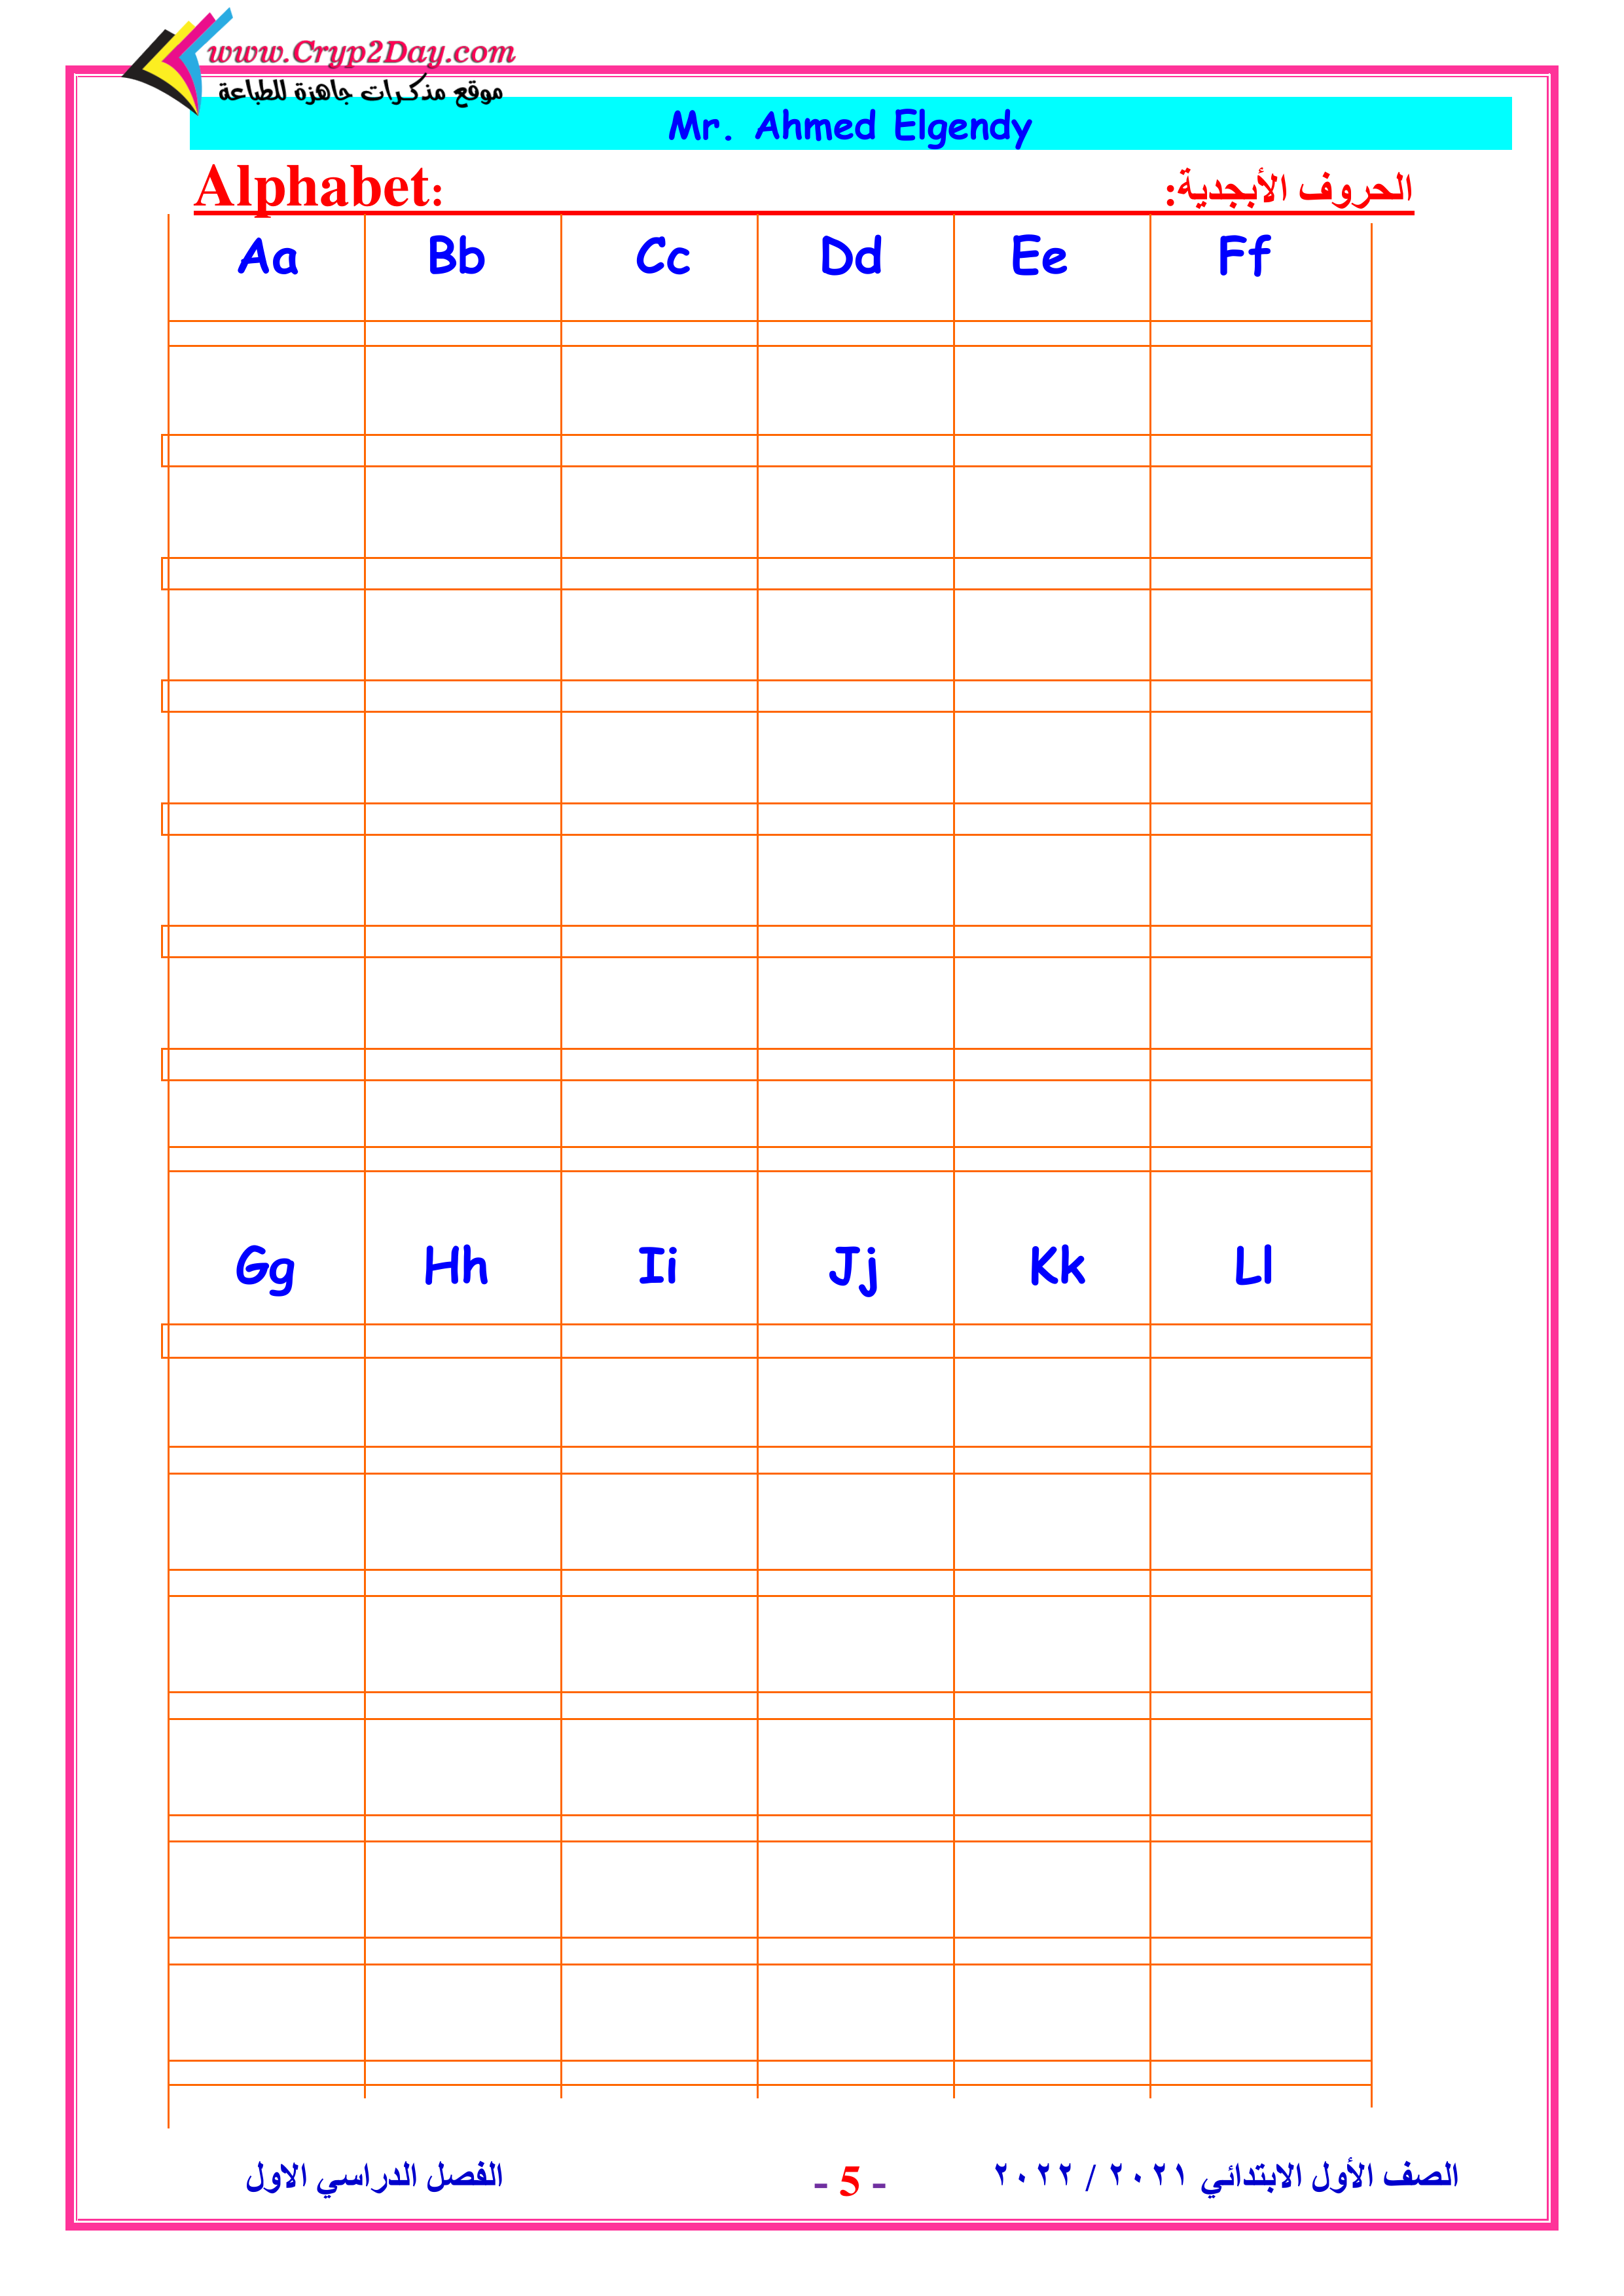 www.Cryp2Day.com
موقع مذكرات جاهزة للطباعة
Mr. Ahmed Elgendy
Alphabet: الحروف الأبجدية:
Aa Bb Cc Dd Ee Ff
Gg Hh Ii Jj Kk Ll
الصف الأول الابتدائي ٢٠٢١ / ٢٠٢٢ - 5 - الفصل الدراسي الاول